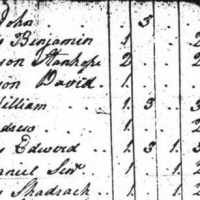 John 3
Benjamin 1 2
son Stanhope 2 2 2
son David 1 1
William 1 3 3
drew 1 2
Edward 1 3 1 3
Sen 1 1 2
Shadrack 1 1 2